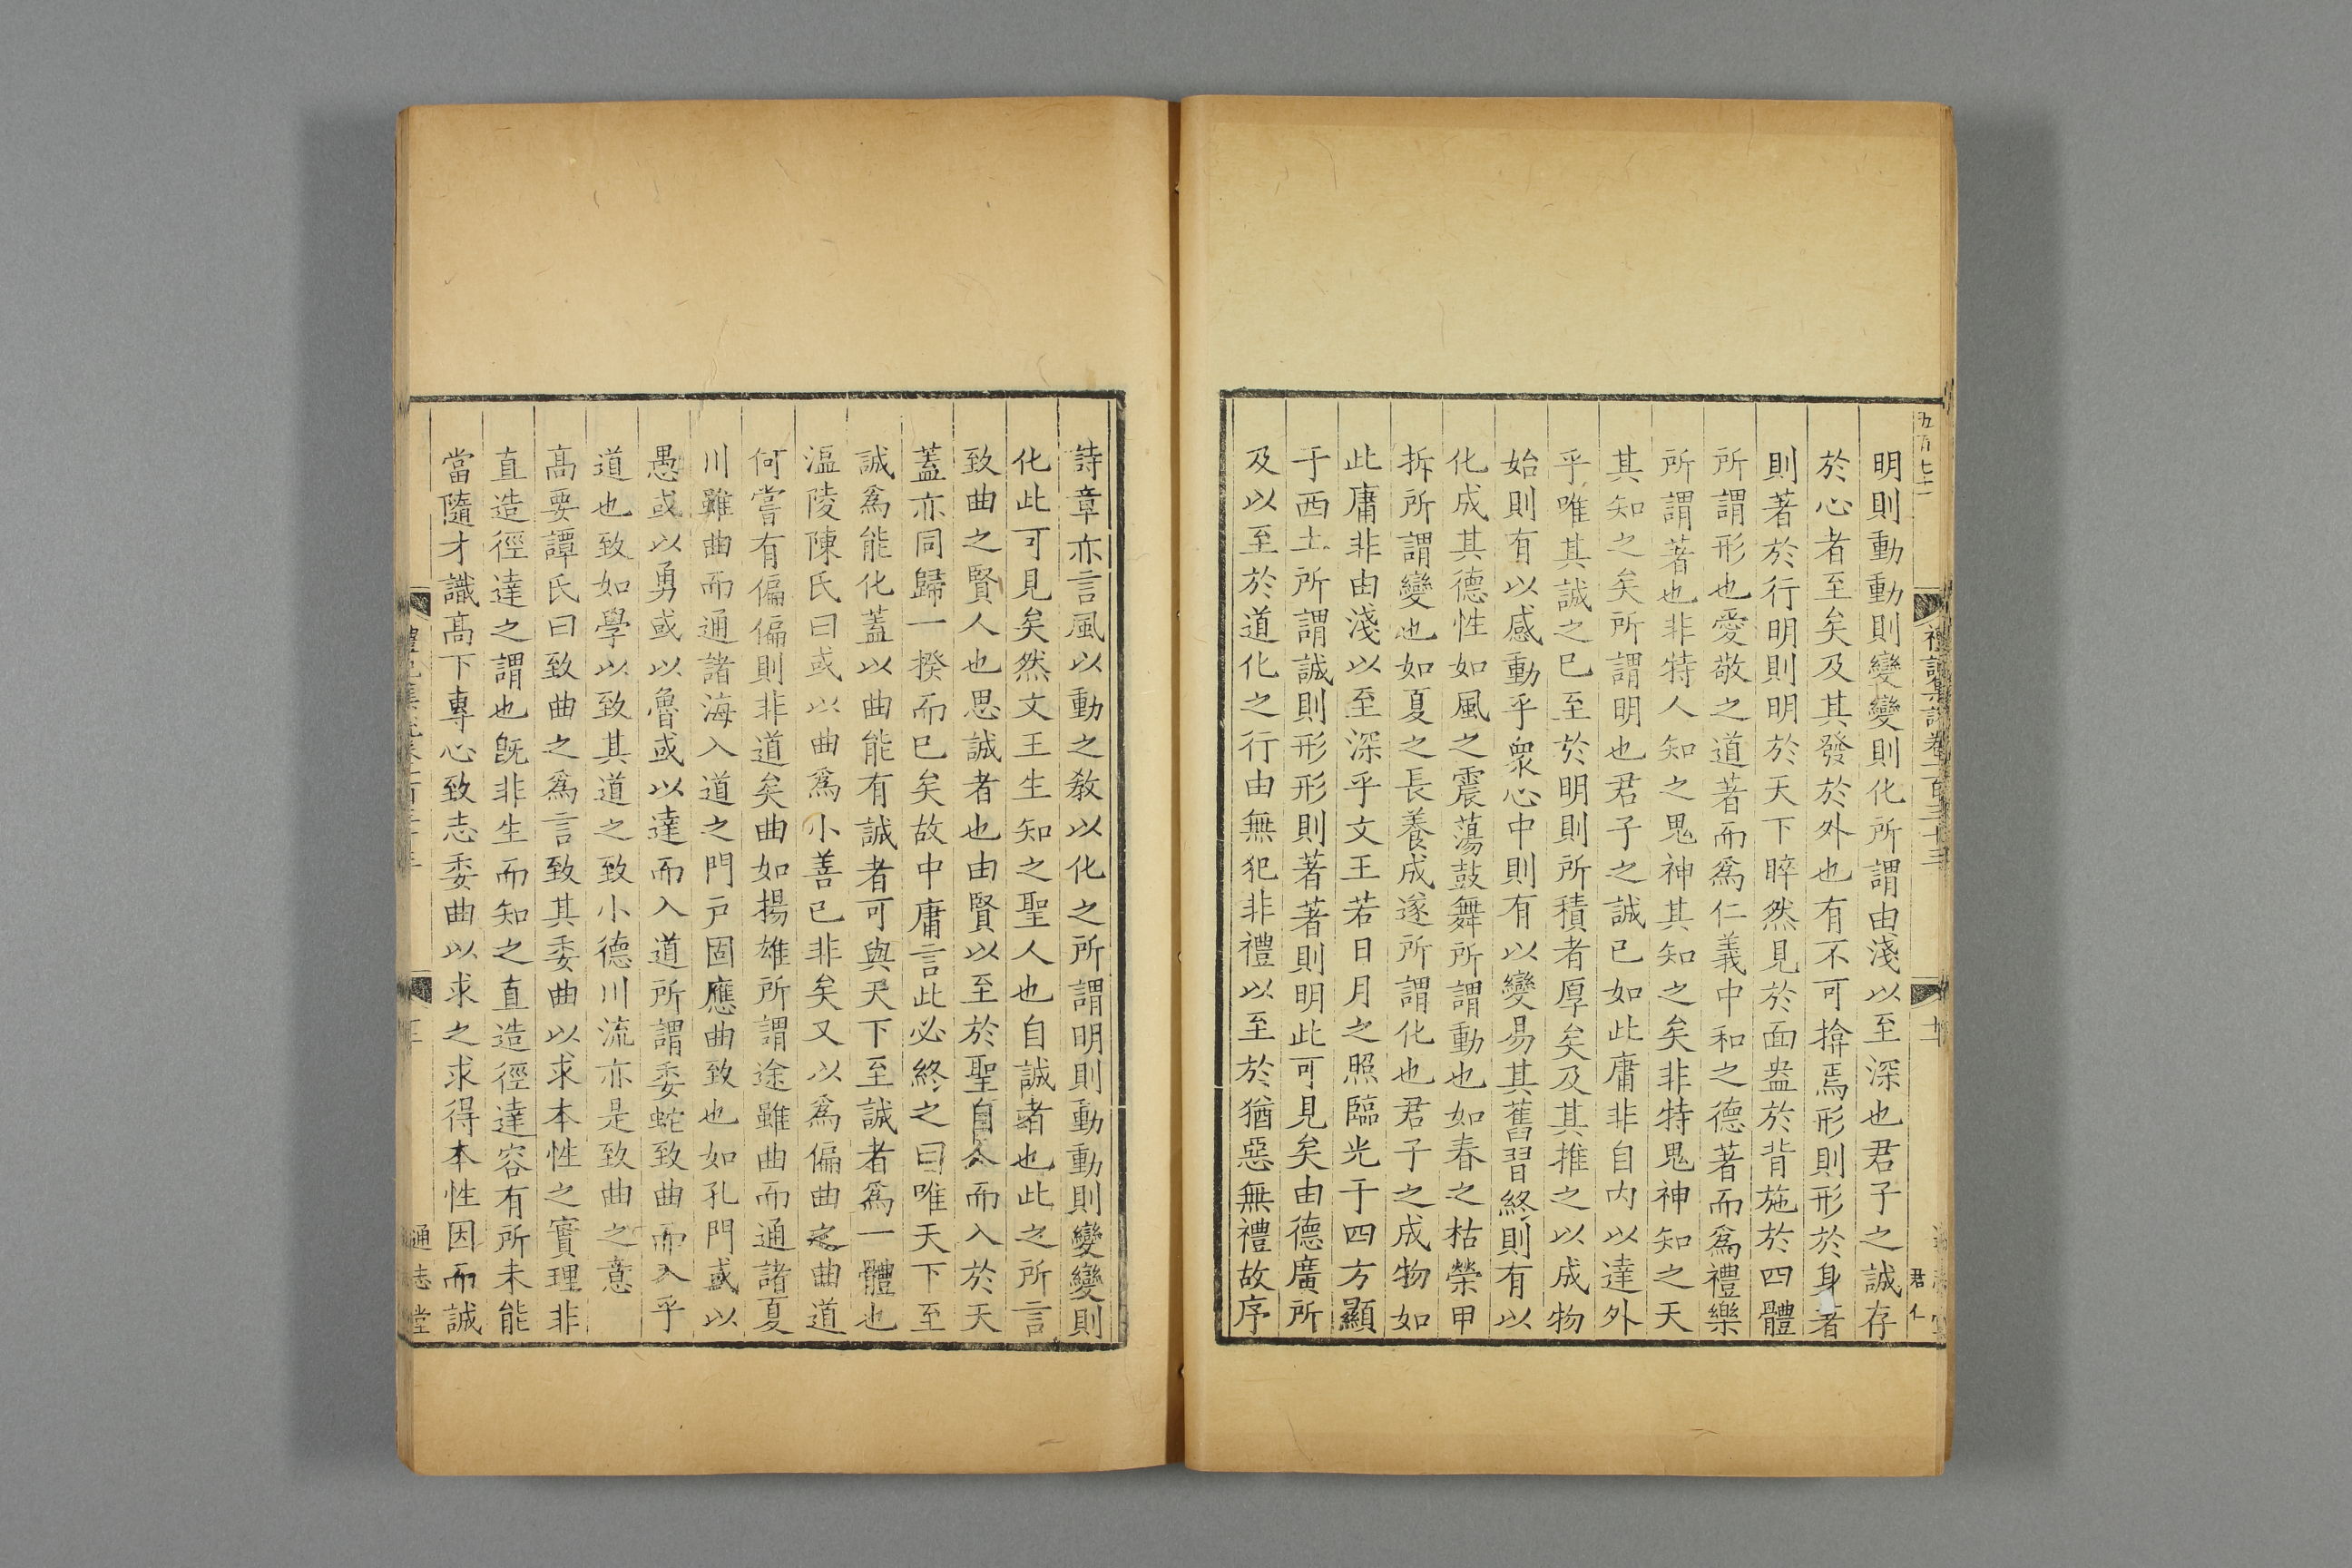 明則動動則變變則化所謂由淺以至深也君子之誠存
於心者至矣及其發於外也有不可揜焉形則形於身著
則著於行明則明於天下睟然見於面盎於背施於四體
所謂形也愛敬之道著而爲仁義中和之德著而爲禮樂
所謂著也非特人知之鬼神其知之矣非特鬼神知之天
其知之矣所謂明也君子之誠已如此庸非自内以達外
乎唯其誠之已至於明則所積者厚矣及其推之以成物
始則有以感動乎衆心中則有以變易其舊習終則有以
化成其德性如風之震蕩鼓舞所謂動也如春之枯榮甲
拆所謂變也如夏之長養成遂所謂化也君子之成物如
此庸非由淺以至深乎文王若日月之照臨光于四方顯
于西土所謂誠則形形則著著則明此可見矣由德廣所
及以至於道化之行由無犯非禮以至於猶惡無禮故序
詩章亦言風以動之敎以化之所謂明則動動則變變則
化此可見矣然文王生知之聖人也自誠者也此之所言
致曲之賢人也思誠者也由賢以至於聖自人而入於天
蓋亦同歸一揆而已矣故中庸言此必終之曰唯天下至
誠爲能化蓋以曲能有誠者可與天下至誠者爲一體也
溫陵陳氏曰或以曲爲小善已非矣又以爲偏曲之曲道
何嘗有偏偏則非道矣曲如揚雄所謂途雖曲而通諸夏
川雖曲而通諸海入道之門戸固應曲致也如孔門或以
愚或以勇或以魯或以達而入道所謂委蛇致曲而入乎
道也致如學以致其道之致小德川流亦是致曲之意
高要譚氏曰致曲之爲言致其委曲以求本性之實理非
直造徑達之謂也旣非生而知之直造徑達容有所未能
當隨才識高下專心致志委曲以求之求得本性因而誠
通志堂